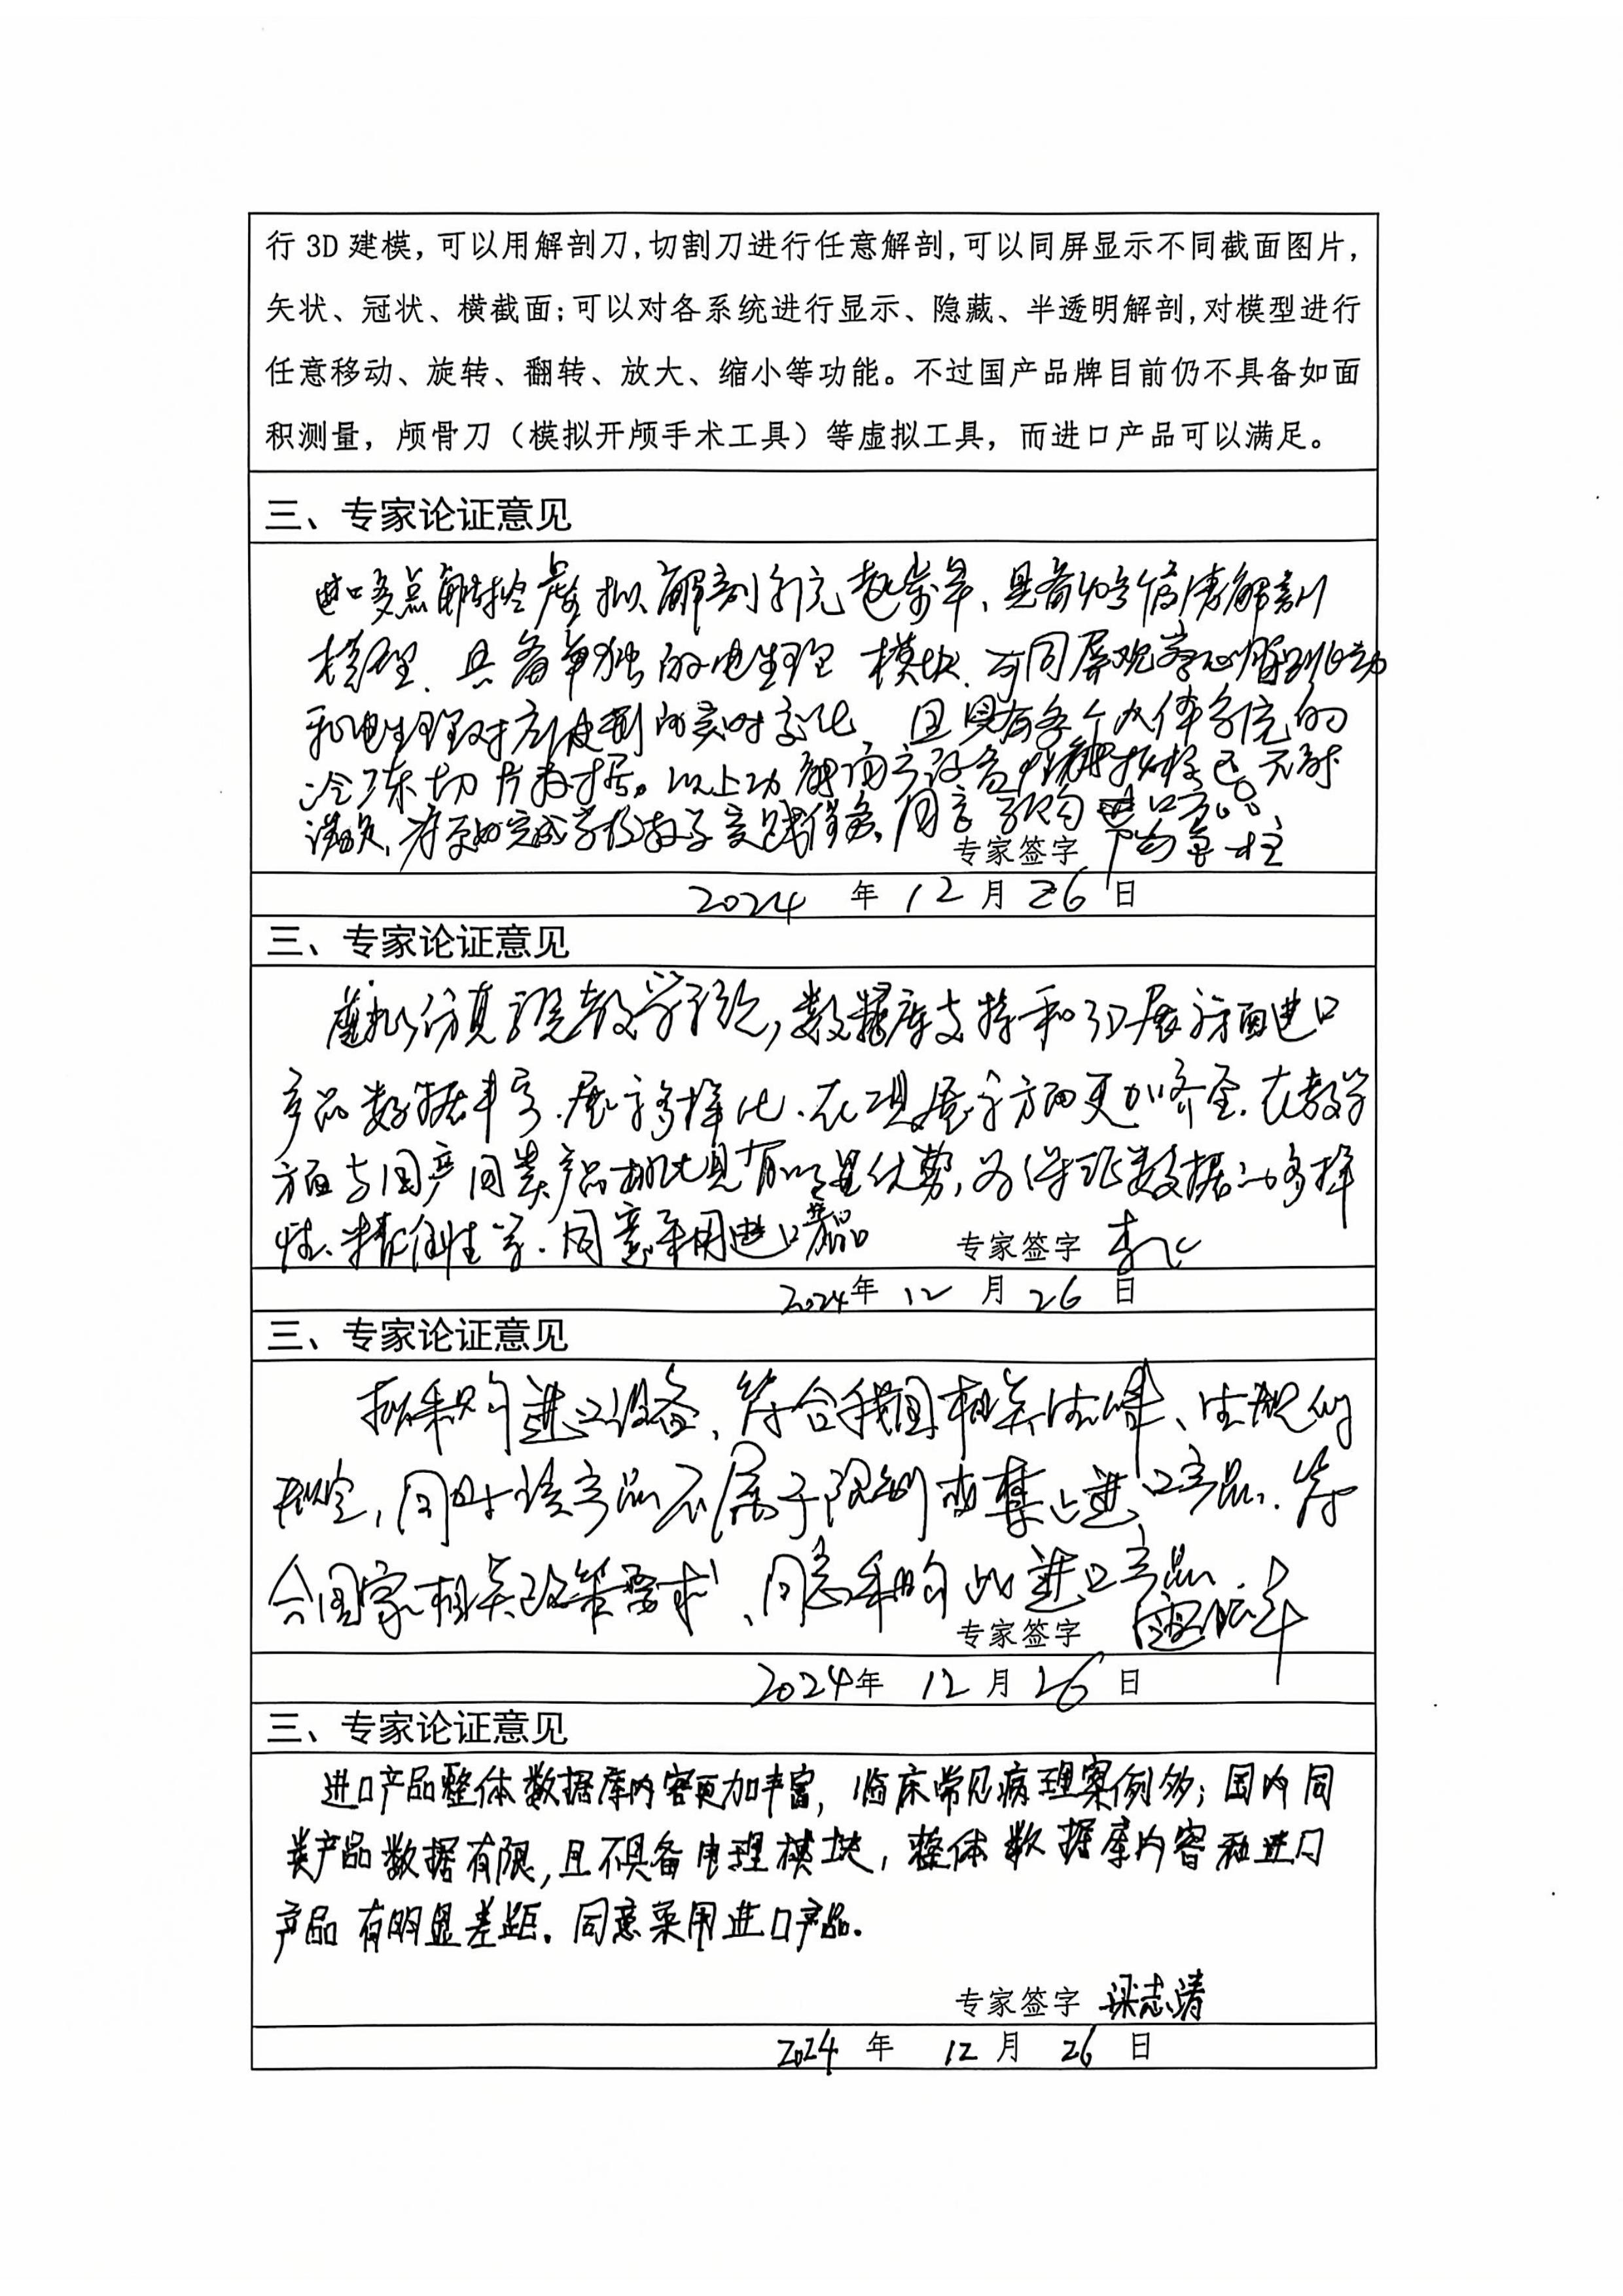 行 3D 建模，可以用解剖刀，切割刀进行任意解剖，可以同屏显示不同截面图片，
矢状、冠状、横截面；可以对各系统进行显示、隐藏、半透明解剖，对模型进行
任意移动、旋转、翻转、放大、缩小等功能。不过国产品牌目前仍不具备如面
积测量，颅骨刀（模拟开颅手术工具）等虚拟工具，而进口产品可以满足。
三、专家论证意见
进口多点触控虚拟解剖系统起步早、具备的高清解剖
模型、具备单独的电生理模块、可同屏观察心脏的
和电生理对应的实时变化 且具有各个人体系统的
冷冻切片数据。以上功能国产设备
为更好完成学校教学实践任务，同意采购进口产品
专家签字
2024 年 12 月 26 日
三、专家论证意见
虚拟仿真教学系统，数据库支持和3D展示方面进口
产品数据丰富、展示多样化、在展示方面更加齐全、在教学
方面与国产同类产品相比具有明显优势，为保证数据的多样
性、精准性等、同意采用进口产品 专家签字
2024年 12 月 26 日
三、专家论证意见
拟采购进口设备，符合我国相关法律、法规的
规定，同时该产品不属于限制或禁止进口产品、符
合国家相关政策要求、同意采购此进口产品
专家签字
2024年 12 月 26 日
三、专家论证意见
进口产品整体数据库内容更加丰富，临床常见病理案例多；国内同
类产品数据有限，且不具备电理模块，整体数据库内容和进口
产品有明显差距。同意采用进口产品。
专家签字 梁志清
2024 年 12 月 26 日